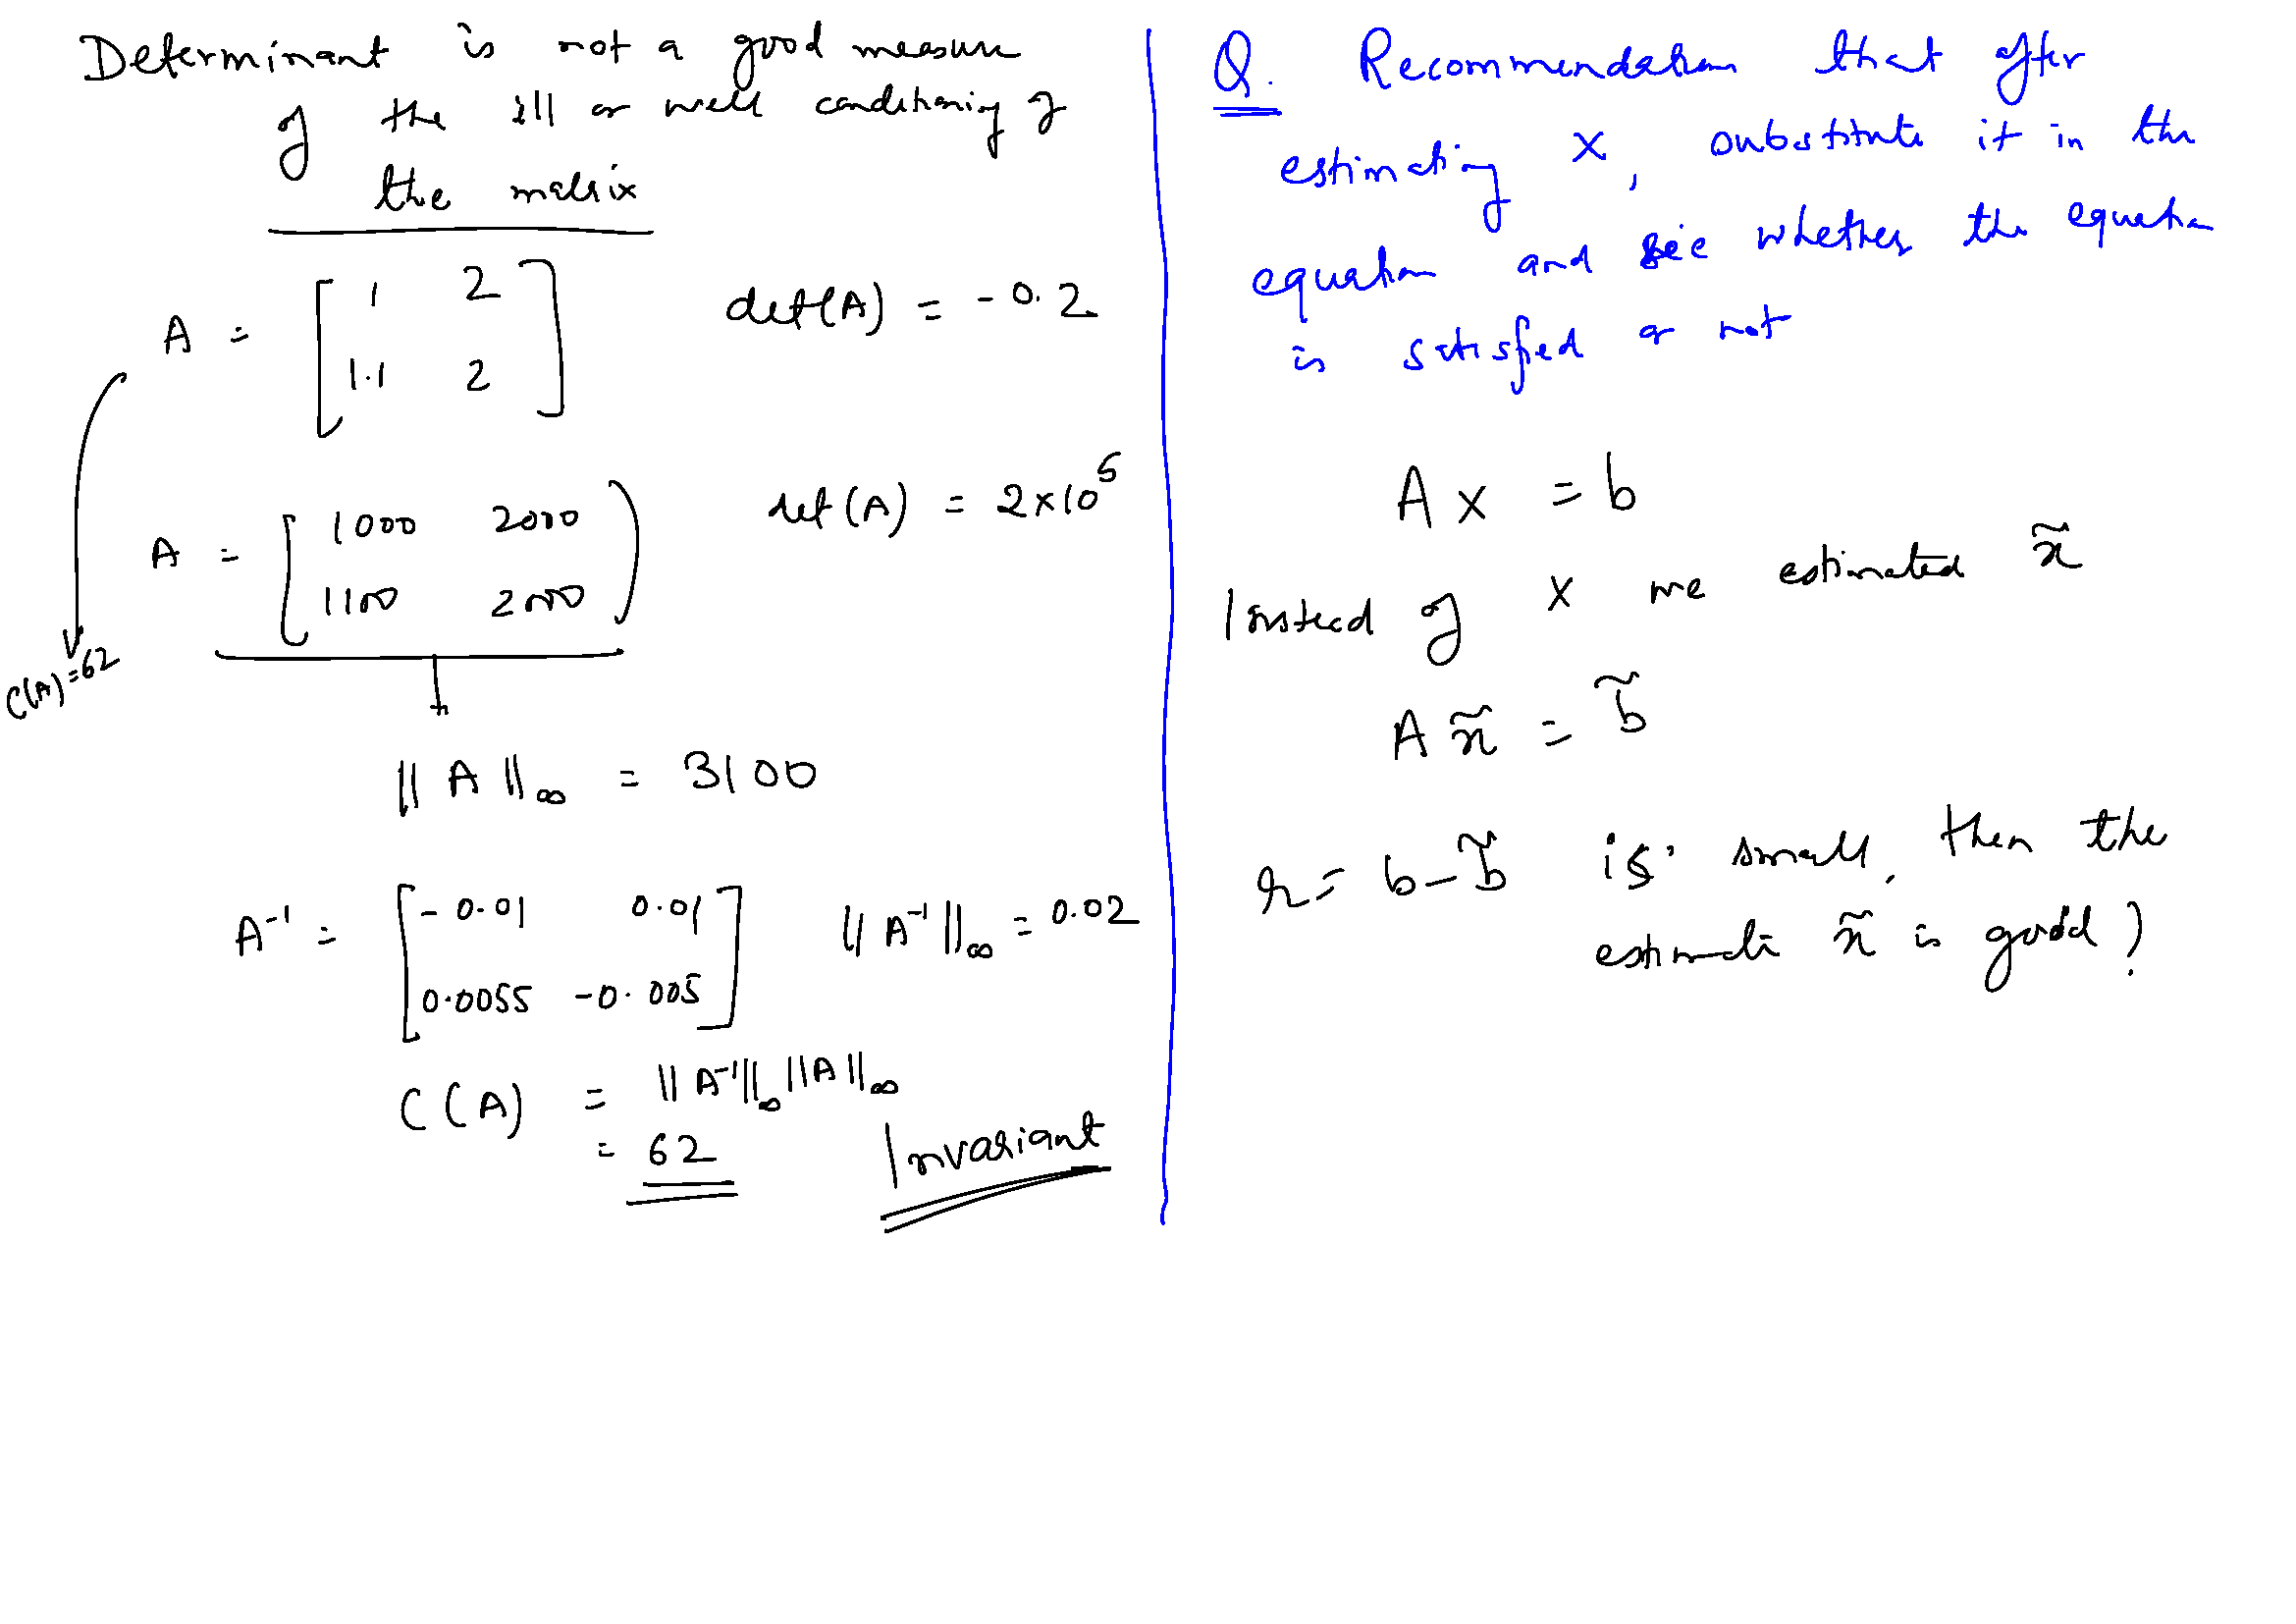 Determinant is not a good measure
of the ill or well conditioning of
the matrix
A = [ 1 2
1.1 2 ]
det(A) = -0.2
A = [ 1000 2000
1100 2000 )
det(A) = 2×10^5
C(A)=62
||A||∞ = 3100
A^-1 = [ -0.01 0.01
0.0055 -0.005 ]
||A^-1||∞ = 0.02
C(A) = ||A^-1||∞ ||A||∞
= 62
Invariant
Q. Recommendation that after
estimating x, substitute it in the
equation and see whether the equation
is satisfied or not
Ax = b
Instead of x we estimated x̃
A x̃ = b̃
r = b - b̃ is small, then the
estimate x̃ is good?